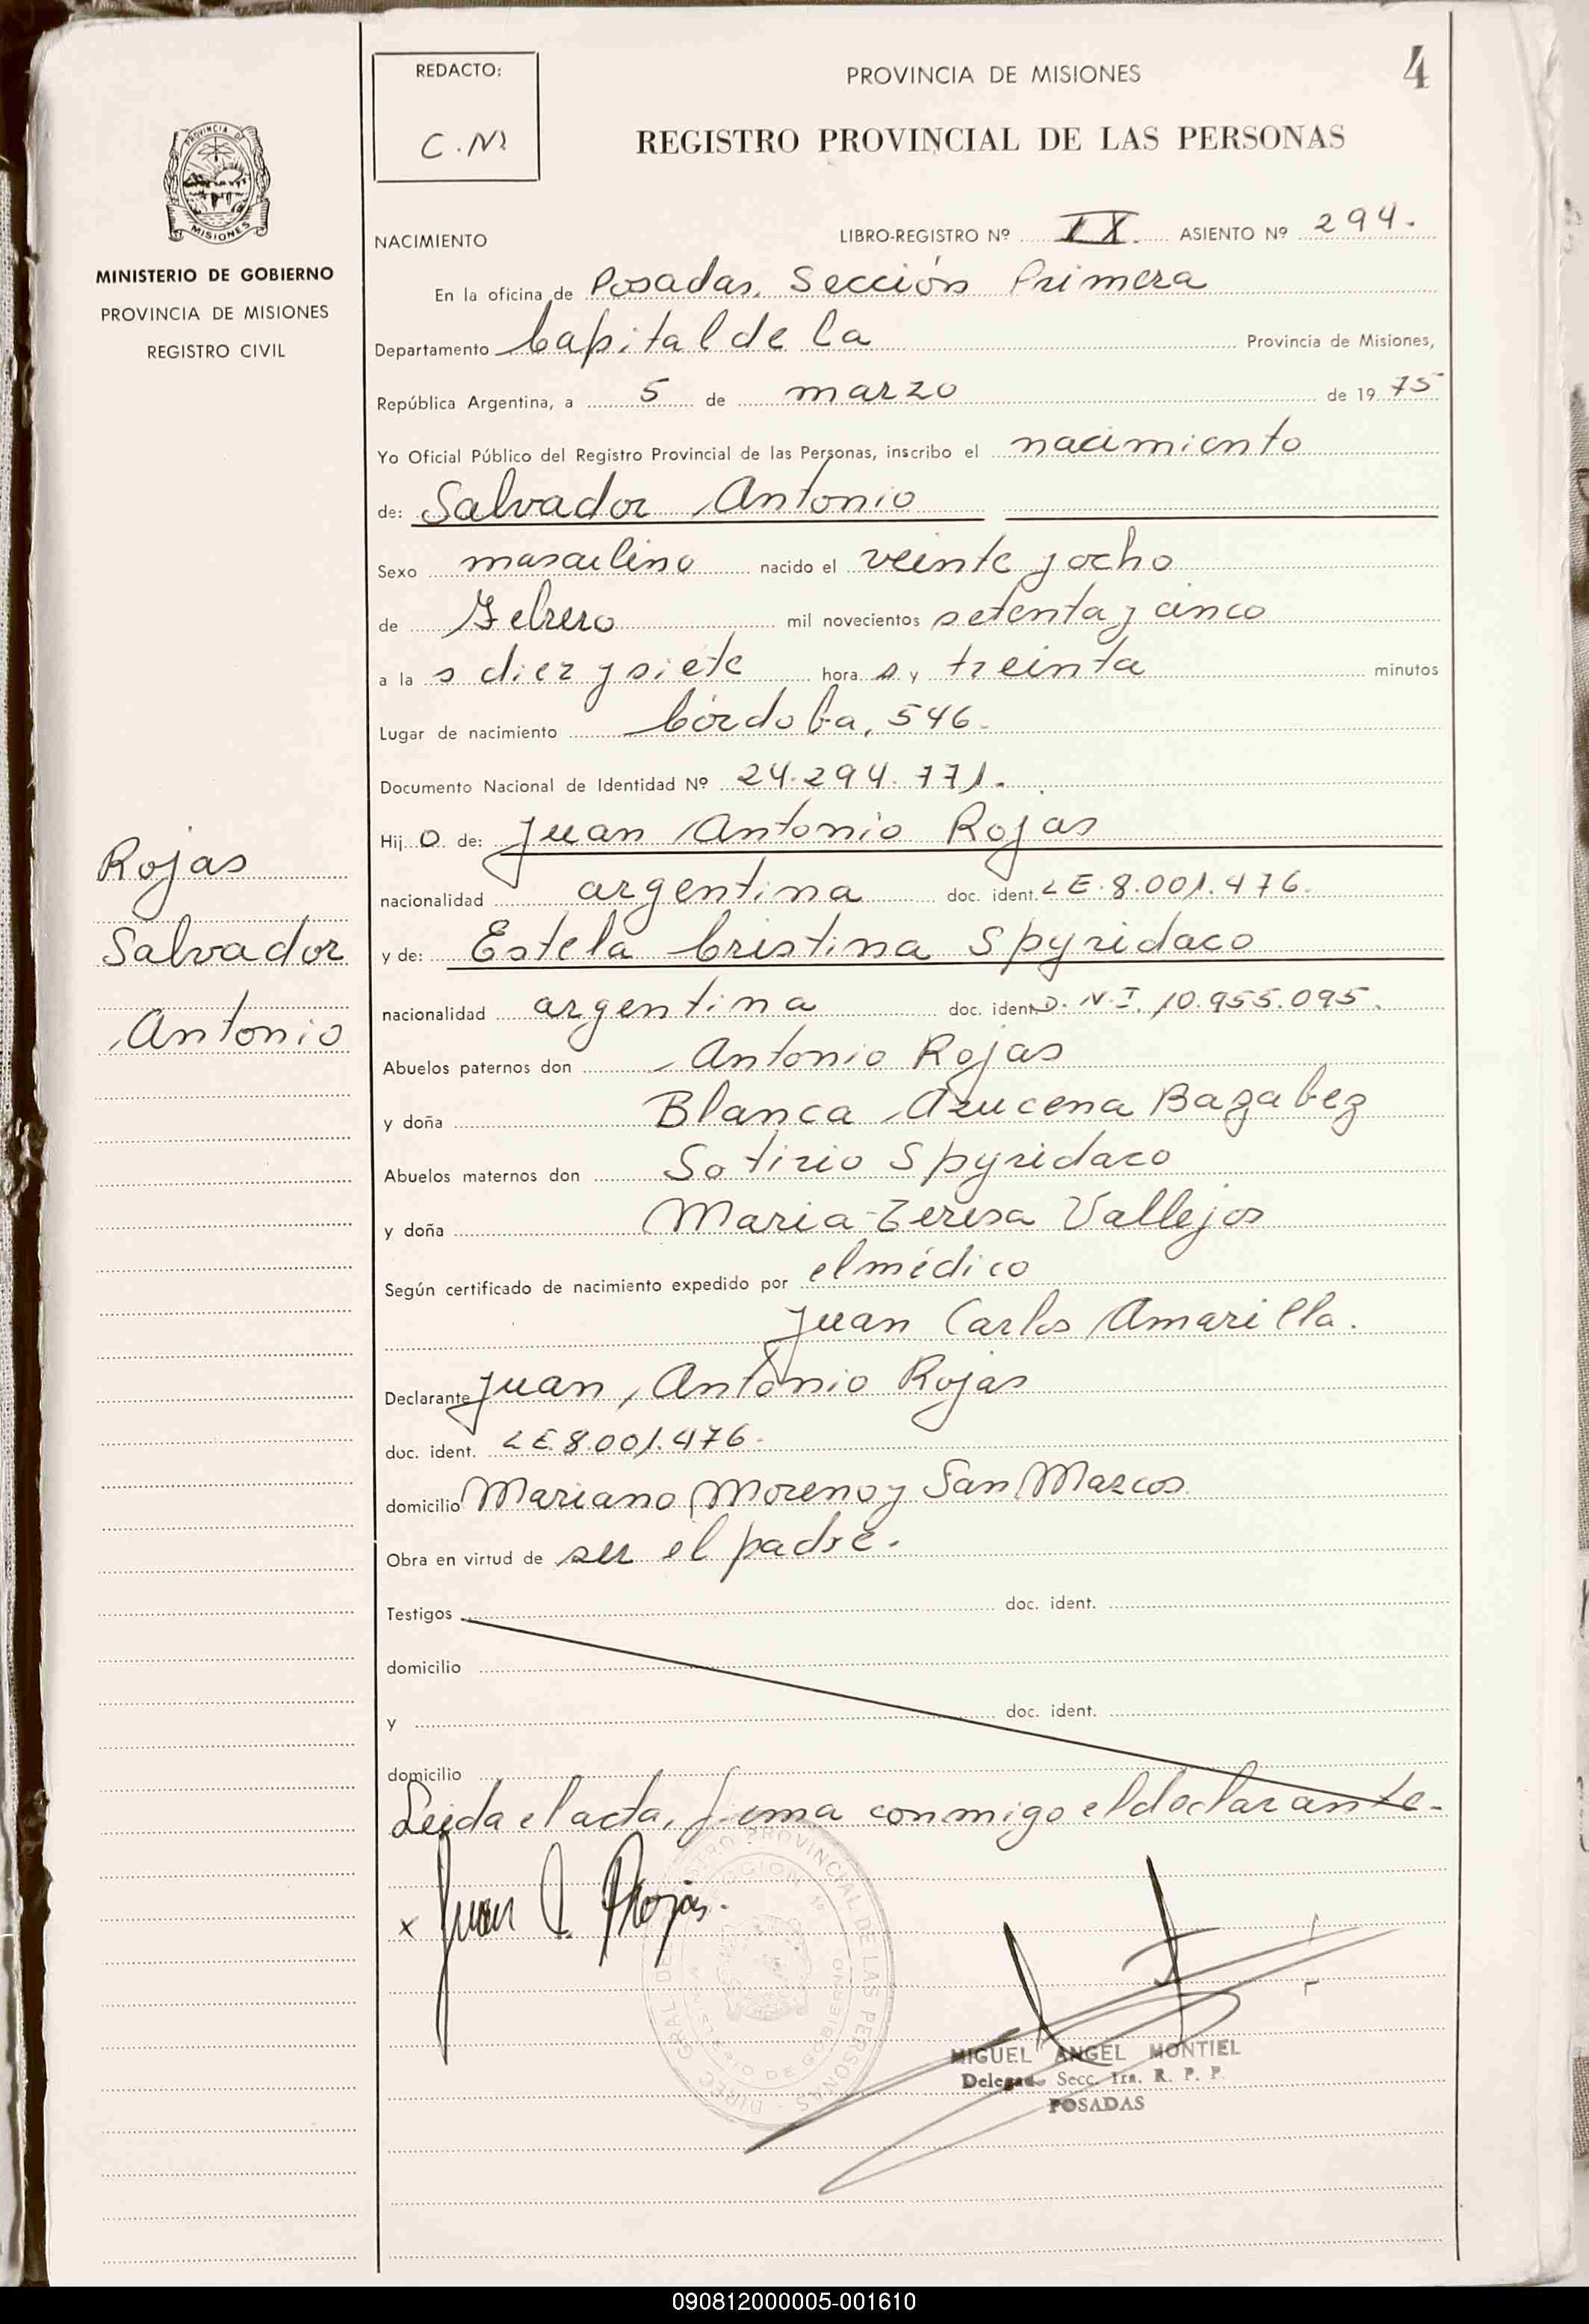 REDACTO:
C.N.
PROVINCIA DE MISIONES
4
REGISTRO PROVINCIAL DE LAS PERSONAS
PROVINCIA DE
MISIONES
MINISTERIO DE GOBIERNO
PROVINCIA DE MISIONES
REGISTRO CIVIL
NACIMIENTO
LIBRO-REGISTRO Nº IX. ASIENTO Nº 294.
En la oficina de Posadas, Sección Primera
Departamento Capital de la Provincia de Misiones,
República Argentina, a 5 de marzo de 1975
Yo Oficial Público del Registro Provincial de las Personas, inscribo el nacimiento
de: Salvador Antonio
Sexo masculino nacido el veinte y ocho
de Febrero mil novecientos setenta y cinco
a la s diez y siete hora s y treinta minutos
Lugar de nacimiento Córdoba, 546.
Documento Nacional de Identidad Nº 24.294.771.
Hij o de: Juan Antonio Rojas
nacionalidad argentina doc. ident. LE.8.001.476.
y de: Estela Cristina Spyridaco
nacionalidad argentina doc. ident. D.N.I. 10.955.095.
Abuelos paternos don Antonio Rojas
y doña Blanca Azucena Bazabez
Abuelos maternos don Sotirio Spyridaco
y doña Maria Teresa Vallejos
Según certificado de nacimiento expedido por el médico
Juan Carlos Amarilla.
Declarante Juan Antonio Rojas
doc. ident. LE.8.001.476.
domicilio Mariano Moreno y San Marcos
Obra en virtud de ser el padre.
Testigos doc. ident.
domicilio
y doc. ident.
domicilio
Leida el acta, firma conmigo el declarante.
x Juan A. Rojas.
Rojas
Salvador
Antonio
DIREC. GRAL. DEL REGISTRO PROVINCIAL DE LAS PERSONAS
MINISTERIO DE GOBIERNO
MIGUEL ANGEL MONTIEL
Delegado Secc. 1ra. R. P. P.
POSADAS
090812000005-001610